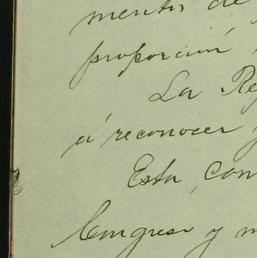 mentos de
proporción
La Re
á reconocer y
Esta, con
Congreso y m